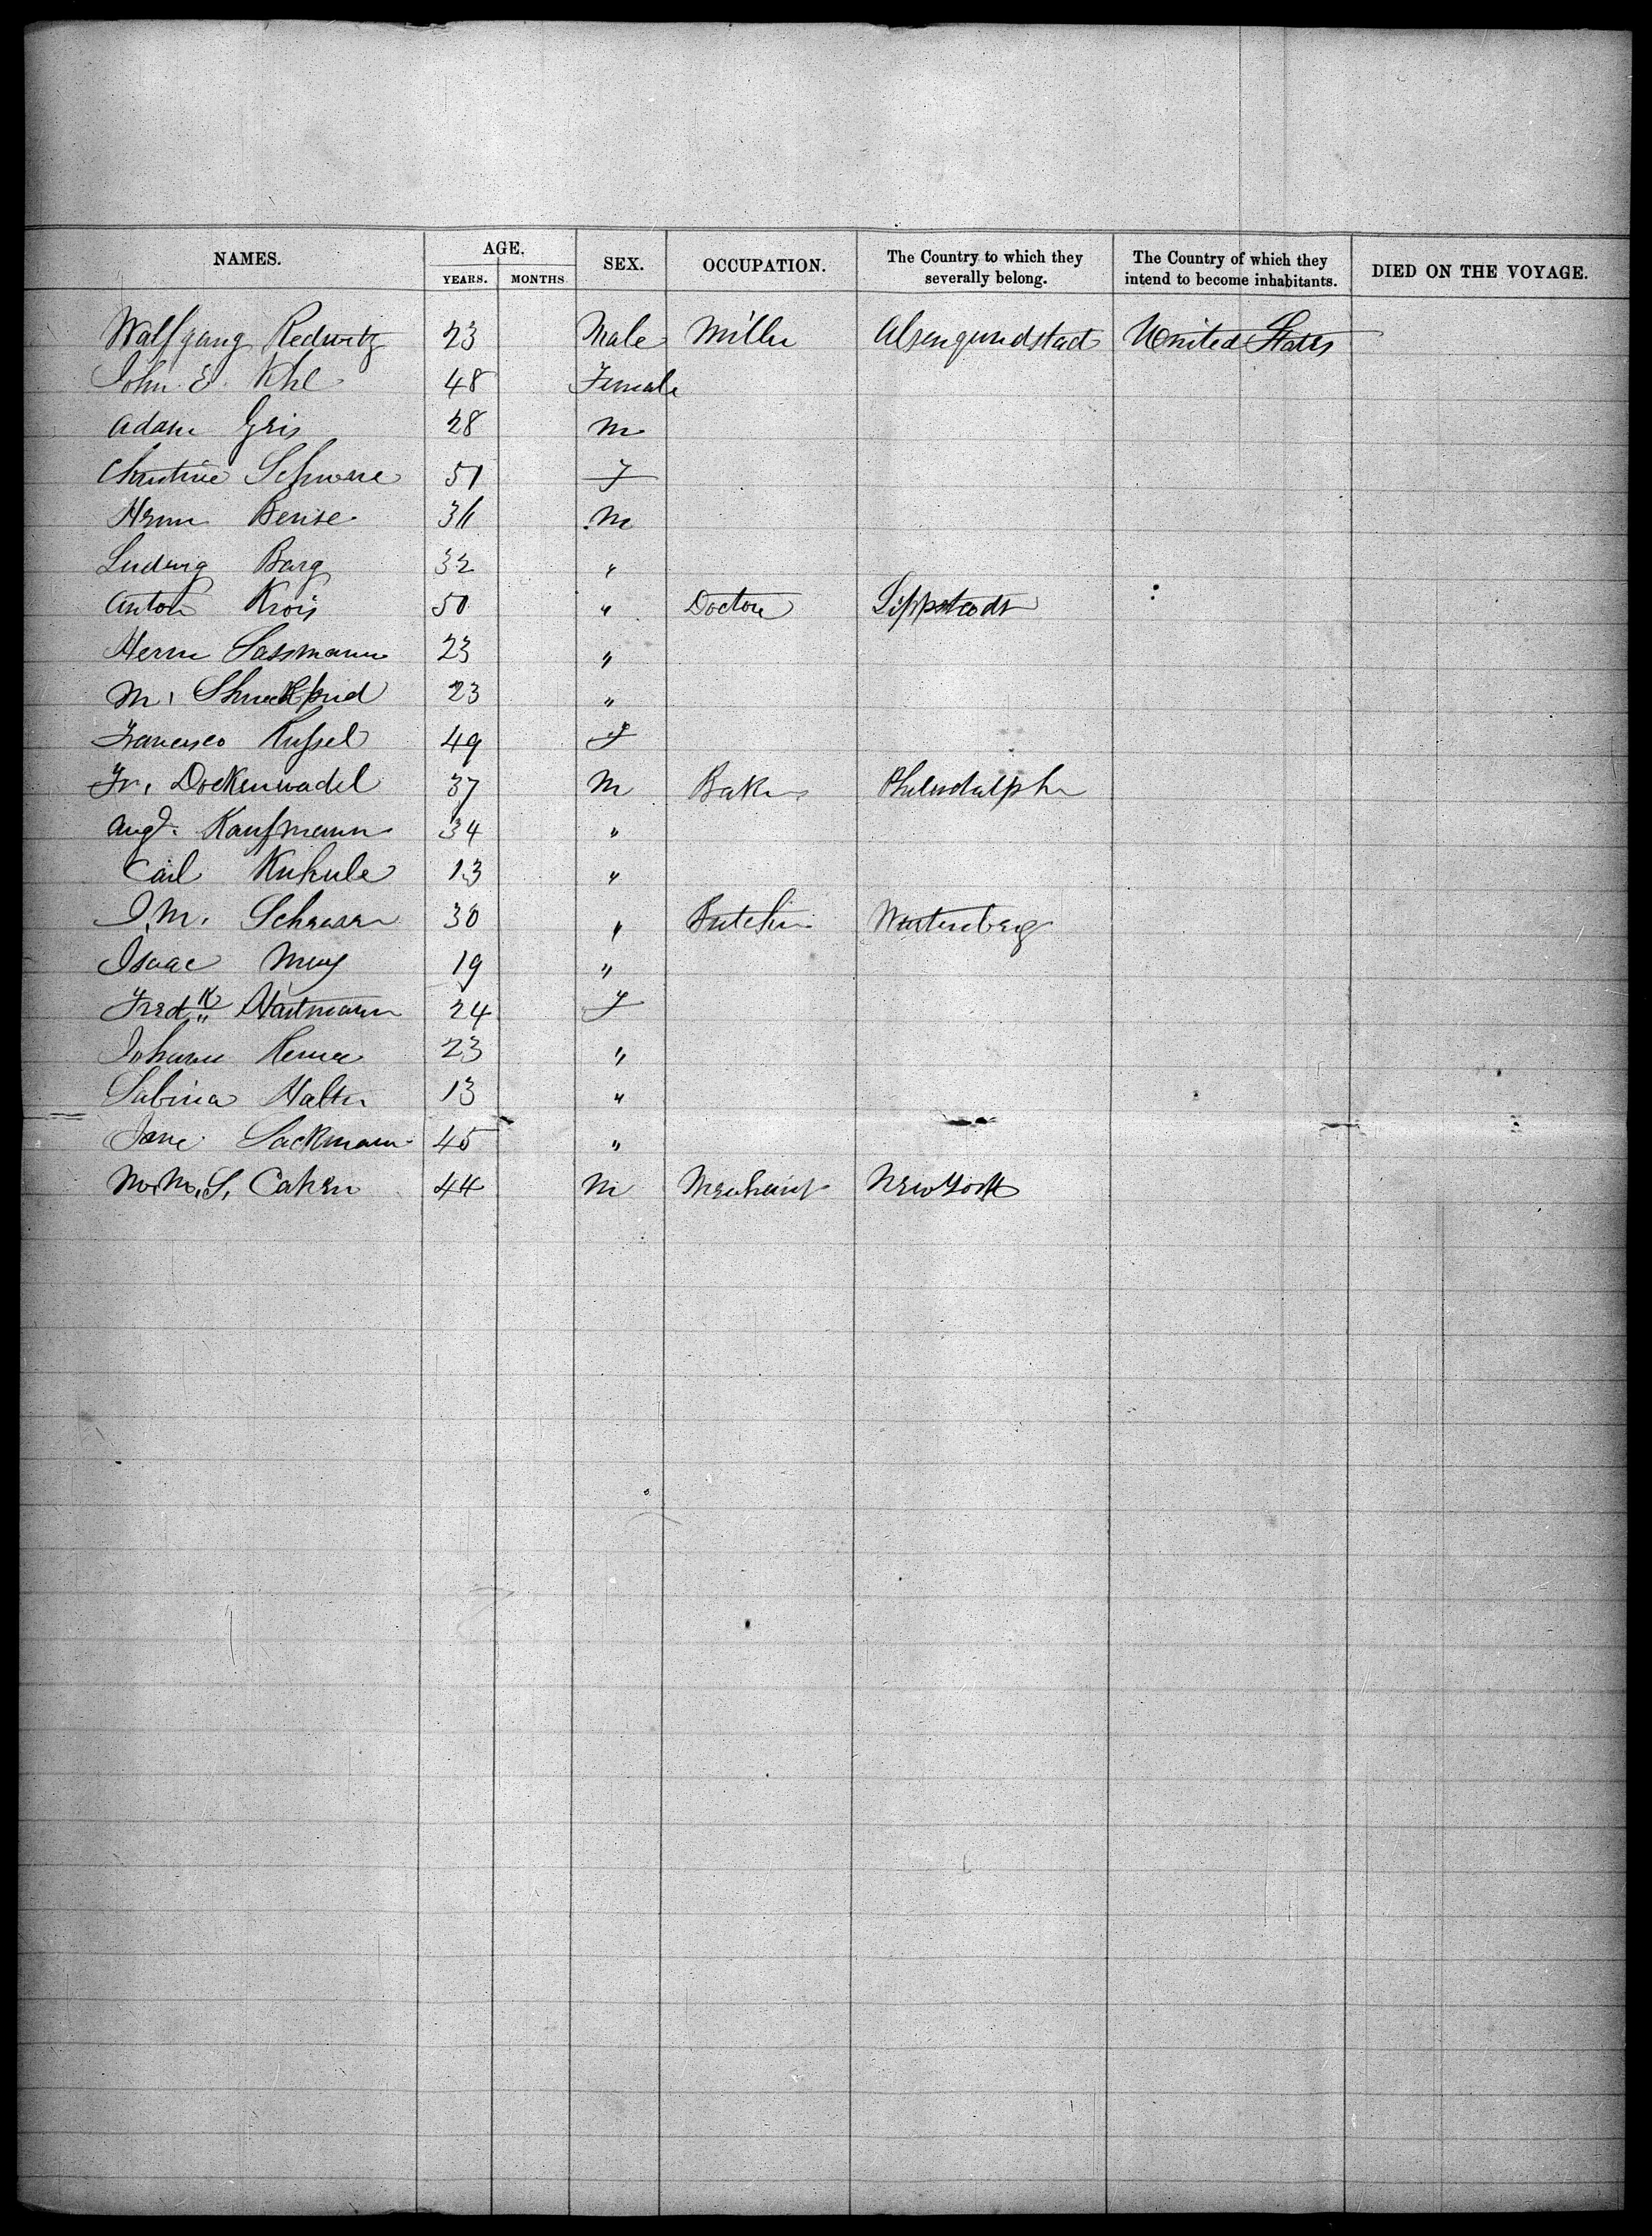 NAMES. AGE. SEX. OCCUPATION. The Country to which they severally belong. The Country of which they intend to become inhabitants. DIED ON THE VOYAGE.
YEARS. MONTHS
Wolfgang Redwitz 23 Male Miller Alsengundstad United States
John E. Uhl 48 Female
Adam Gris 28 M
Christine Schware 51 F
Herm Beise 36 M
Ludwig Barg 32 "
Anton Krois 50 " Doctor Lippstadt :
Herm Sassmann 23 "
M. 23 "
Francisco Russel 49 F
Fr. Dockenwadel 37 M Baker Philadalpha
Augt. Kaufmann 34 "
Carl Kukule 13 "
J. M. 30 " Butcher Wurtenberg
Isaac 19 "
Fredk Hartmann 24 F
Johann 23 "
Sabina Halter 13 "
Jane Sackmann 45 "
M. M. S. Cahen 44 M Merchant New York